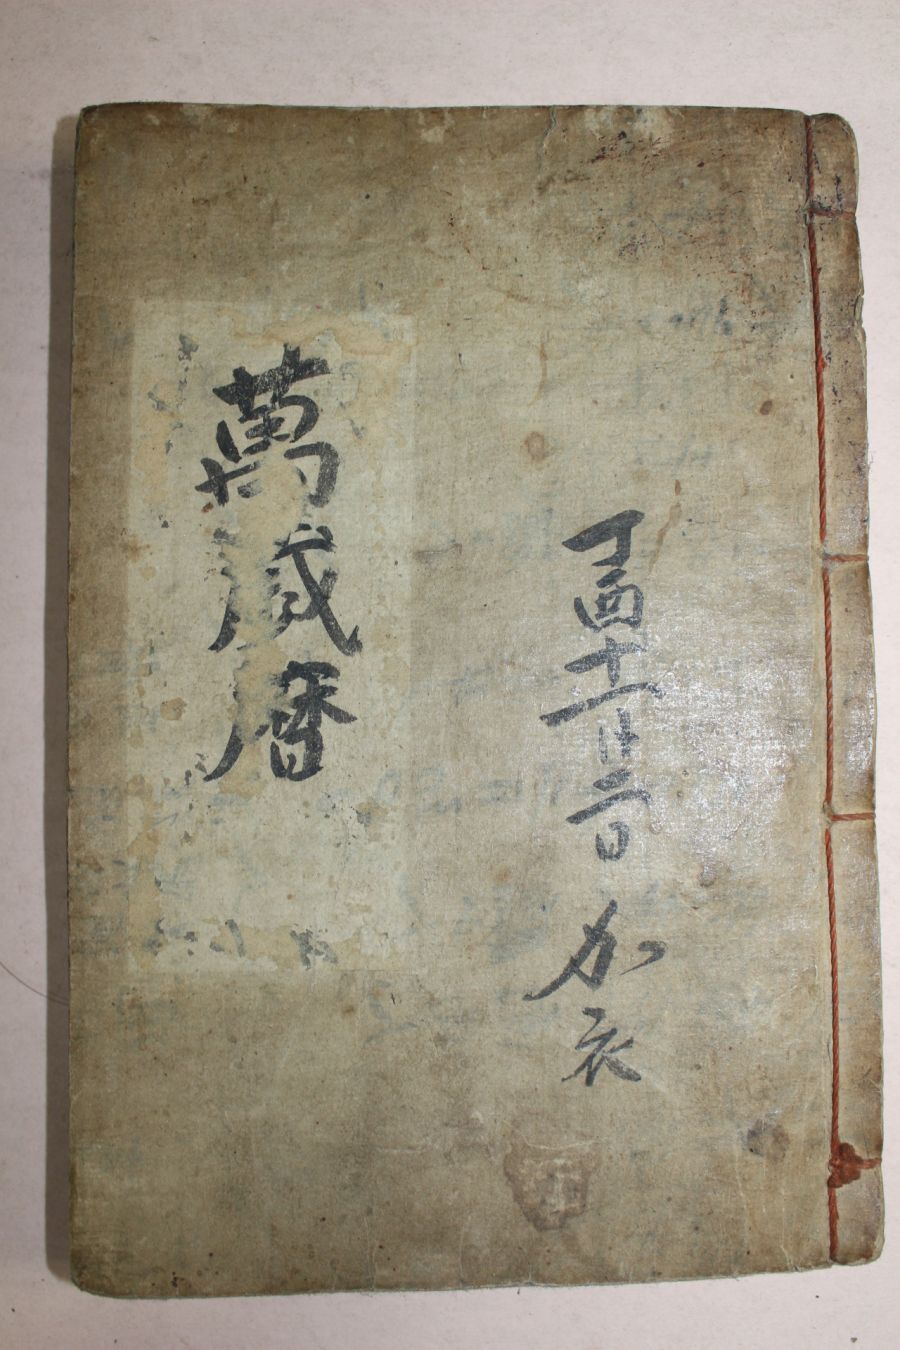 丁酉十一月二日 加衣
萬歲曆